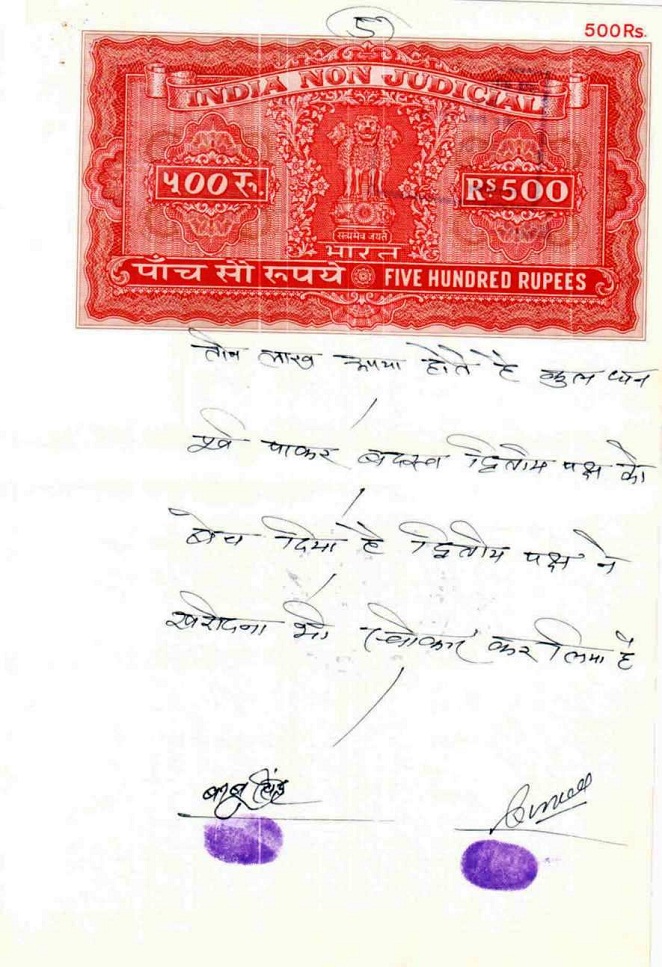 5
500Rs.
INDIA NON JUDICIAL
५00 रु.
Rs 500
सत्यमेव जयते
भारत
पाँच सौ रूपये FIVE HUNDRED RUPEES
तीन लाख रूपया होते है कुल धन
पूर्व पाकर बदस्त द्वितीय पक्ष को
बेच दिया है द्वितीय पक्ष ने
खरीदना भी स्वीकार कर लिया है
सिंह